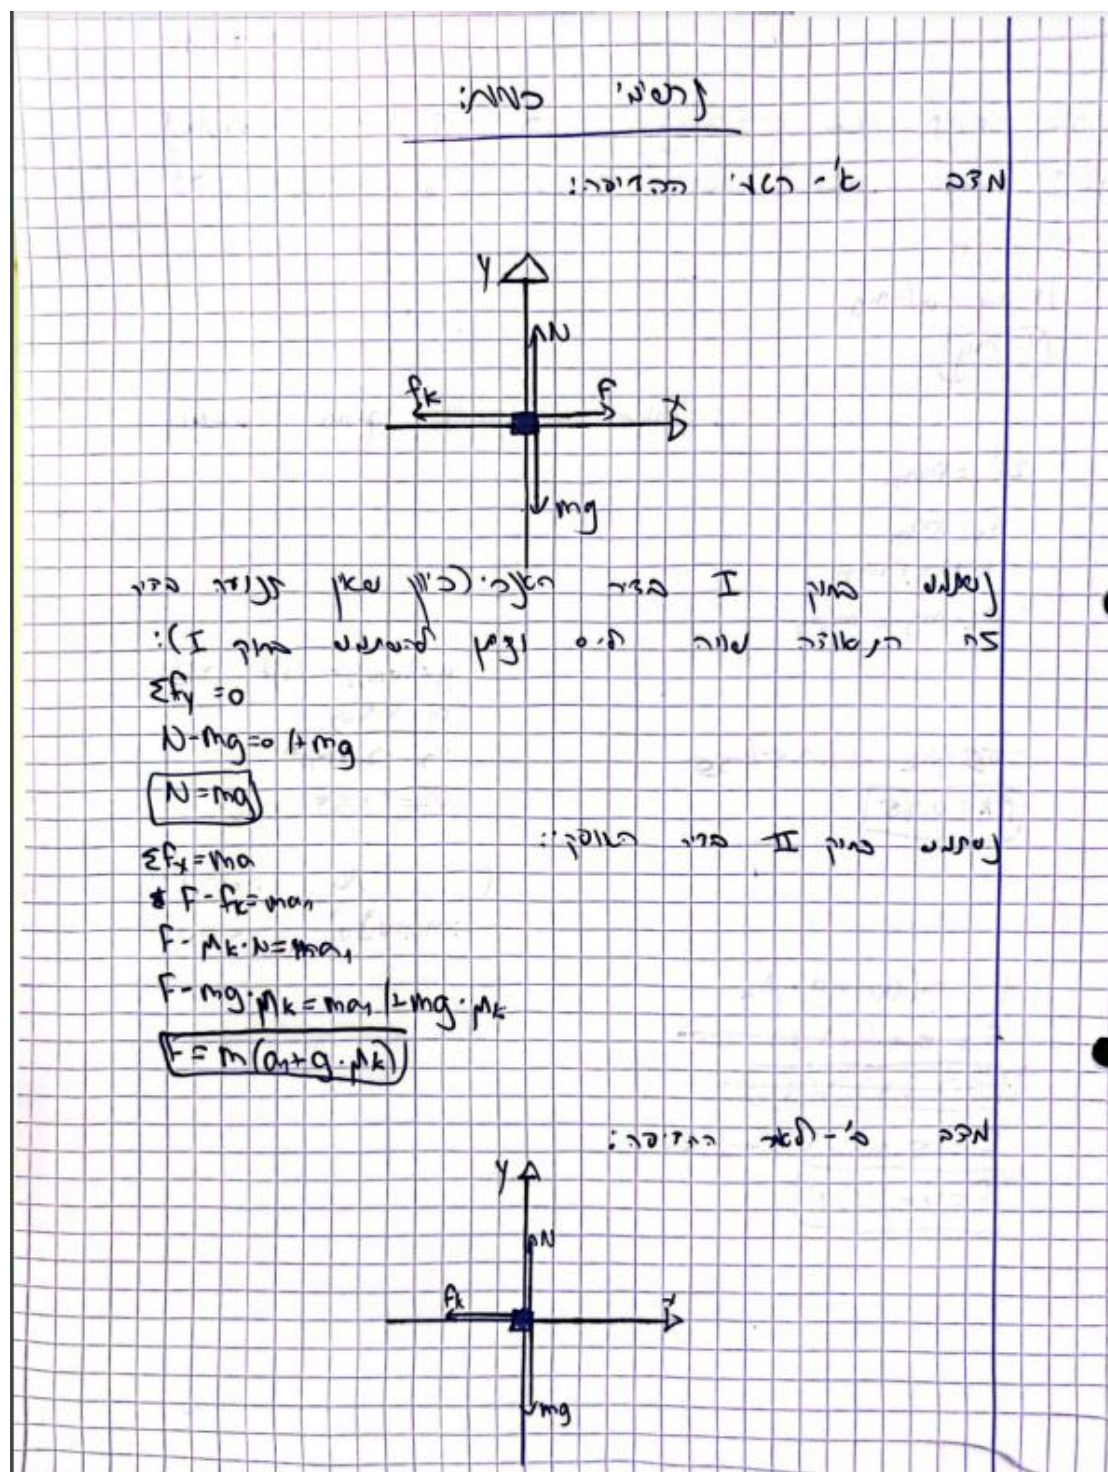 תרשימי כוחות:
מצב א'- רגעי ההדיפה:
Y
N
fk F x
mg
נשתמש בחוק I בציר האנכי (כיוון שאין תנועה בציר
זה התאוצה שווה ל-0 וניתן להשתמש בחוק I):
Σfy = 0
N-mg=0 /+mg
N=mg
נשתמש בחוק II בציר האופקי:
Σfx=ma
F-fk=ma1
F-μk·N=ma1
F-mg·μk=ma1 /+mg·μk
F=m(a1+g·μk)
מצב ב'-לאחר ההדיפה:
Y
N
fk x
mg